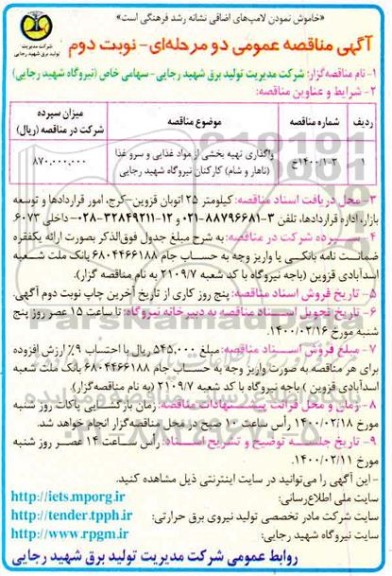 «خاموش نمودن لامپ‌های اضافی نشانه رشد فرهنگی است»
شرکت مدیریت
تولید برق شهید رجایی
آگهی مناقصه عمومی دو مرحله‌ای- نوبت دوم
۱- نام مناقصه‌گزار: شرکت مدیریت تولید برق شهید رجایی- سهامی خاص (نیروگاه شهید رجایی)
۲- شرایط و عناوین مناقصه:
ردیف شماره مناقصه موضوع مناقصه میزان سپرده شرکت در مناقصه (ریال)
۱ ۱۴۰۰-۱-۲خ واگذاری تهیه بخشی از مواد غذایی و سرو غذا (ناهار و شام) کارکنان نیروگاه شهید رجایی ۸۷۰,۰۰۰,۰۰۰
۳- محل دریافت اسناد مناقصه: کیلومتر ۲۵ اتوبان قزوین-کرج، امور قراردادها و توسعه
بازار، اداره قراردادها، تلفن ۳-۸۸۷۹۶۶۸۱-۰۲۱ و ۱۲-۳۲۸۴۹۲۱۱-۰۲۸- داخلی ۶۰۷۳
۴- سپرده شرکت در مناقصه: به شرح مبلغ جدول فوق‌الذکر بصورت ارائه یکفقره
ضمانت نامه بانکی یا واریز وجه به حساب جام ۶۸۰۴۴۶۶۱۸۸ بانک ملت شعبه
اسدآبادی قزوین (باجه نیروگاه با کد شعبه ۲۱۰۹/۷ به نام مناقصه گزار).
۵- تاریخ فروش اسناد مناقصه: پنج روز کاری از تاریخ آخرین چاپ نوبت دوم آگهی.
۶- تاریخ تحویل اسناد مناقصه به دبیرخانه نیروگاه: تا ساعت ۱۵ عصر روز پنج
شنبه مورخ ۱۴۰۰/۰۲/۱۶.
۷- مبلغ فروش اسناد مناقصه: مبلغ ۵۴۵,۰۰۰ ریال با احتساب ۹٪ ارزش افزوده
برای هر مناقصه به صورت واریز وجه به حساب جام ۶۸۰۴۴۶۶۱۸۸ بانک ملت شعبه
اسدآبادی قزوین ) باجه نیروگاه با کد شعبه ۲۱۰۹/۷ (به نام مناقصه‌گزار)
۸- زمان و محل قرائت پیشنهادات مناقصه: زمان بازگشایی پاکات روز شنبه
مورخ ۱۴۰۰/۰۲/۱۸ رأس ساعت ۱۰ صبح در محل مناقصه‌گزار انجام خواهد شد.
۹- تاریخ جلسه توضیح و تشریح اسناد: رأس ساعت ۱۴ عصر روز شنبه
مورخ ۱۴۰۰/۰۲/۱۱.
- این آگهی را می‌توانید در سایت اینترنتی ذیل مشاهده کنید.
سایت ملی اطلاع‌رسانی: http://iets.mporg.ir
سایت شرکت مادر تخصصی تولید نیروی برق حرارتی: http://tender.tpph.ir
سایت نیروگاه شهید رجایی: http://www.rpgm.ir
روابط عمومی شرکت مدیریت تولید برق شهید رجایی